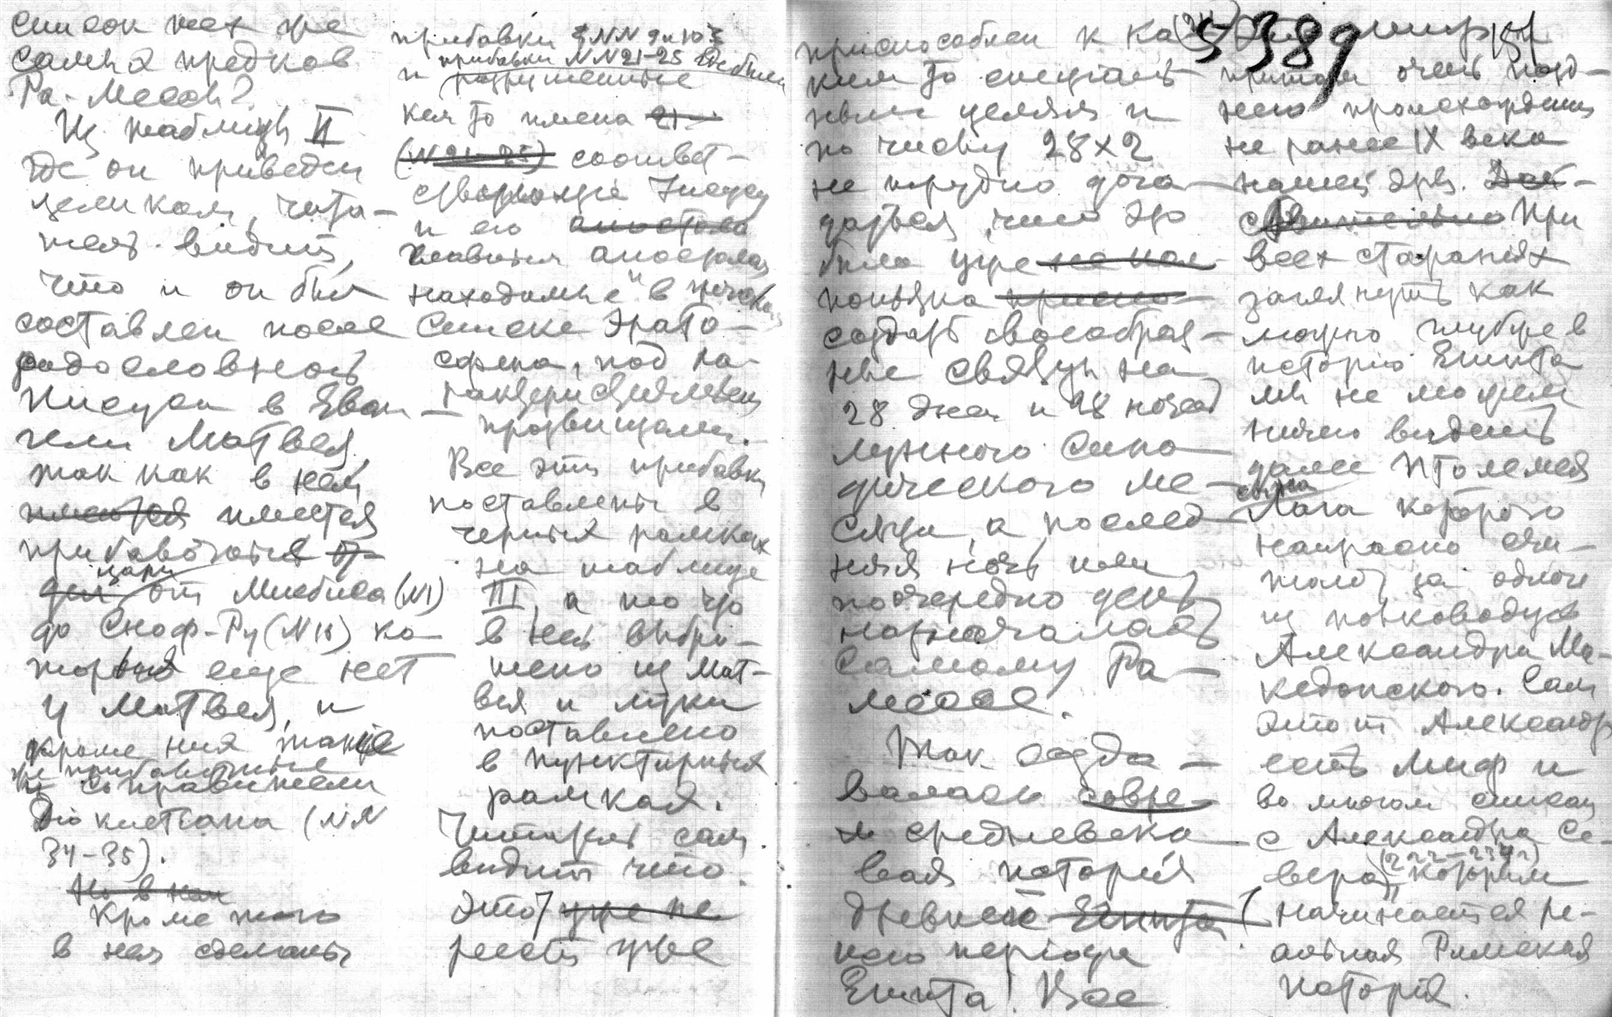 список тех же
самых предков
Ра-Месов?
Из таблицы II
где он приведен
целиком, чита-
тель видит,
что и он был
составлен после
родословной
Иисуса в Еван-
гелии Матвея,
так как в ней
имеются имеется
прибавочные
цари
от Миебиса (N1)
до Сноф-Ру (N16) ко-
торых еще нет
у Матвея, и
кроме них также
не прибавочные
соправители
Диоклетиана (NN
34-35).
Но в нем
Кроме того
в нем сделаны
прибавки NN 9 и 10
прибавки NN 21-25 где были
и разрушенные
кем то имена 21
(N 21-25) соответ-
ствующие Иисусу
и его апостола
главным апостолам
находимые в
списке Эрато-
сфена, под
прозвищами.
Все эти прибавки
поставлены в
черных рамках
на таблице
III, а то что
в ней выбро-
шено из Мат-
вея и Луки
поставлено
в пунктирных
рамках.
Читатель сам
видит что
этот уже не
реестр уже
приспособлен к ка-
ким то специаль-
ным целям и
по числу 28×2
не трудно дога-
даться, что это
была уже
попытка приспо-
создать своеобраз-
ные святцы на
28 дней и 28 ночей
лунного сино-
дического ме-
сяца, а послед-
няя ночь или
поочередно день
назначалась
самому Ра-
месее.
Так созда-
валась совре-
м средневеко-
вая история
древнего Египта
него периода
Египта! Все
5389
притом очень позд-
него происхождения
не ранее IX века
нашей эры. Дей-
ствительно При
всех стараниях
заглянуть как
можно глубже в
историю Египта
мы не можем
ничего видеть
далее Птолемея
сына
Лага которого
напрасно счи-
тают за одного
из полководцев
Александра Ма-
кедонского. Сам
этот Александр
есть миф и
во многом списан
с Александра Се-
вера (222-235 г)
с которым
начинается ре-
альная Римская
история.